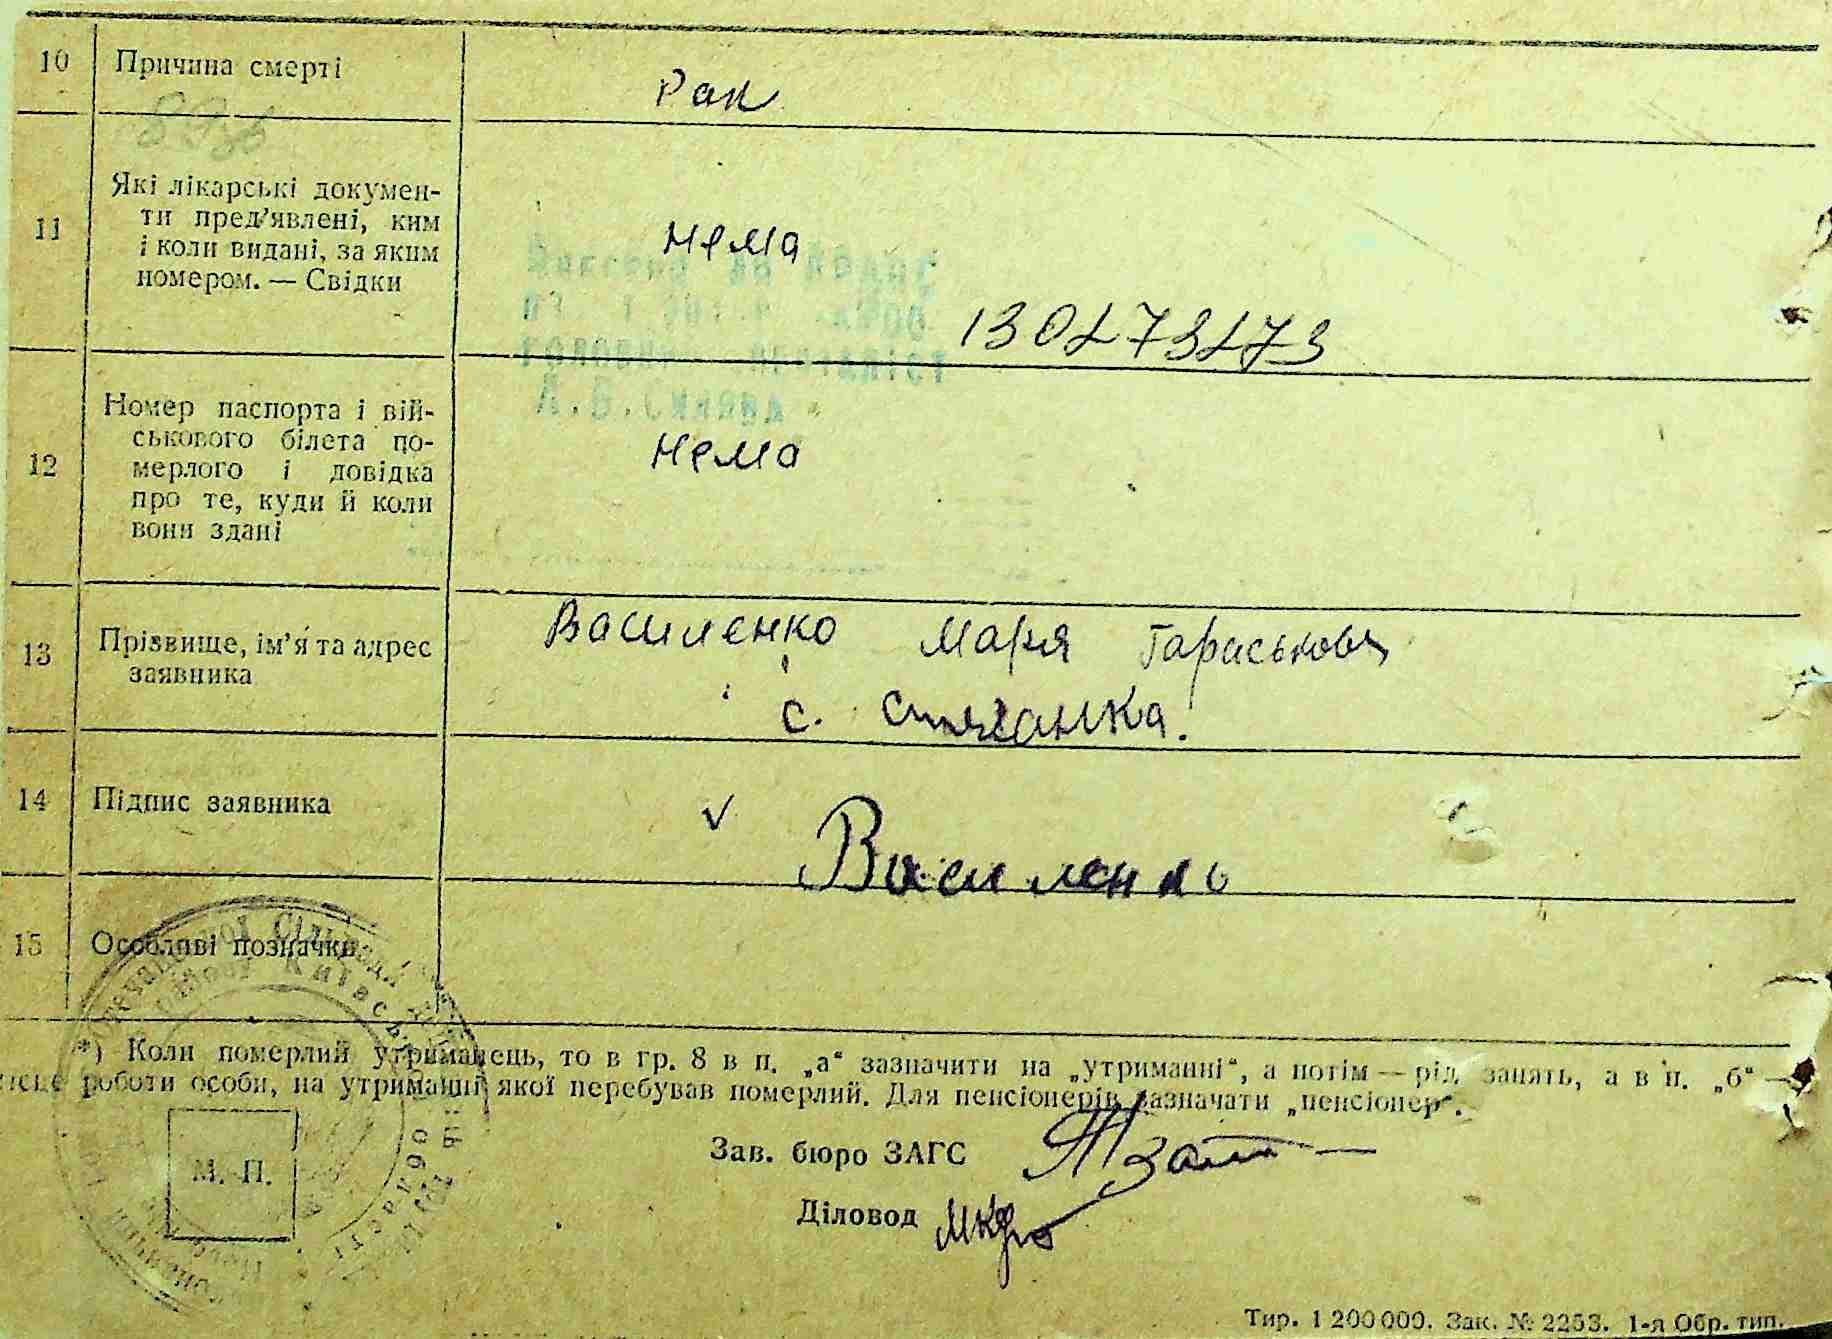 10 Причина смерті
Рак
11 Які лікарські докумен-
ти пред'явлені, ким
і коли видані, за яким
номером. — Свідки
нема
130273273
А.В.
12 Номер паспорта і вій-
ськового білета по-
мерлого і довідка
про те, куди й коли
вони здані
нема
13 Прізвище, ім'я та адрес
заявника
Василенко Марія Тараськовн
с.
14 Підпис заявника
✓ Василенко
15 Особливі позначки
*) Коли померлий утриманець, то в гр. 8 в п. „а“ зазначити на „утриманні“, а потім — рід занять, а в п. „б“ —
місце роботи особи, на утриманні якої перебував померлий. Для пенсіонерів зазначати „пенсіонер“.
М. П.
Зав. бюро ЗАГС
Діловод
Тир. 1 200 000. Зак. № 2253. 1-я Обр. тип.